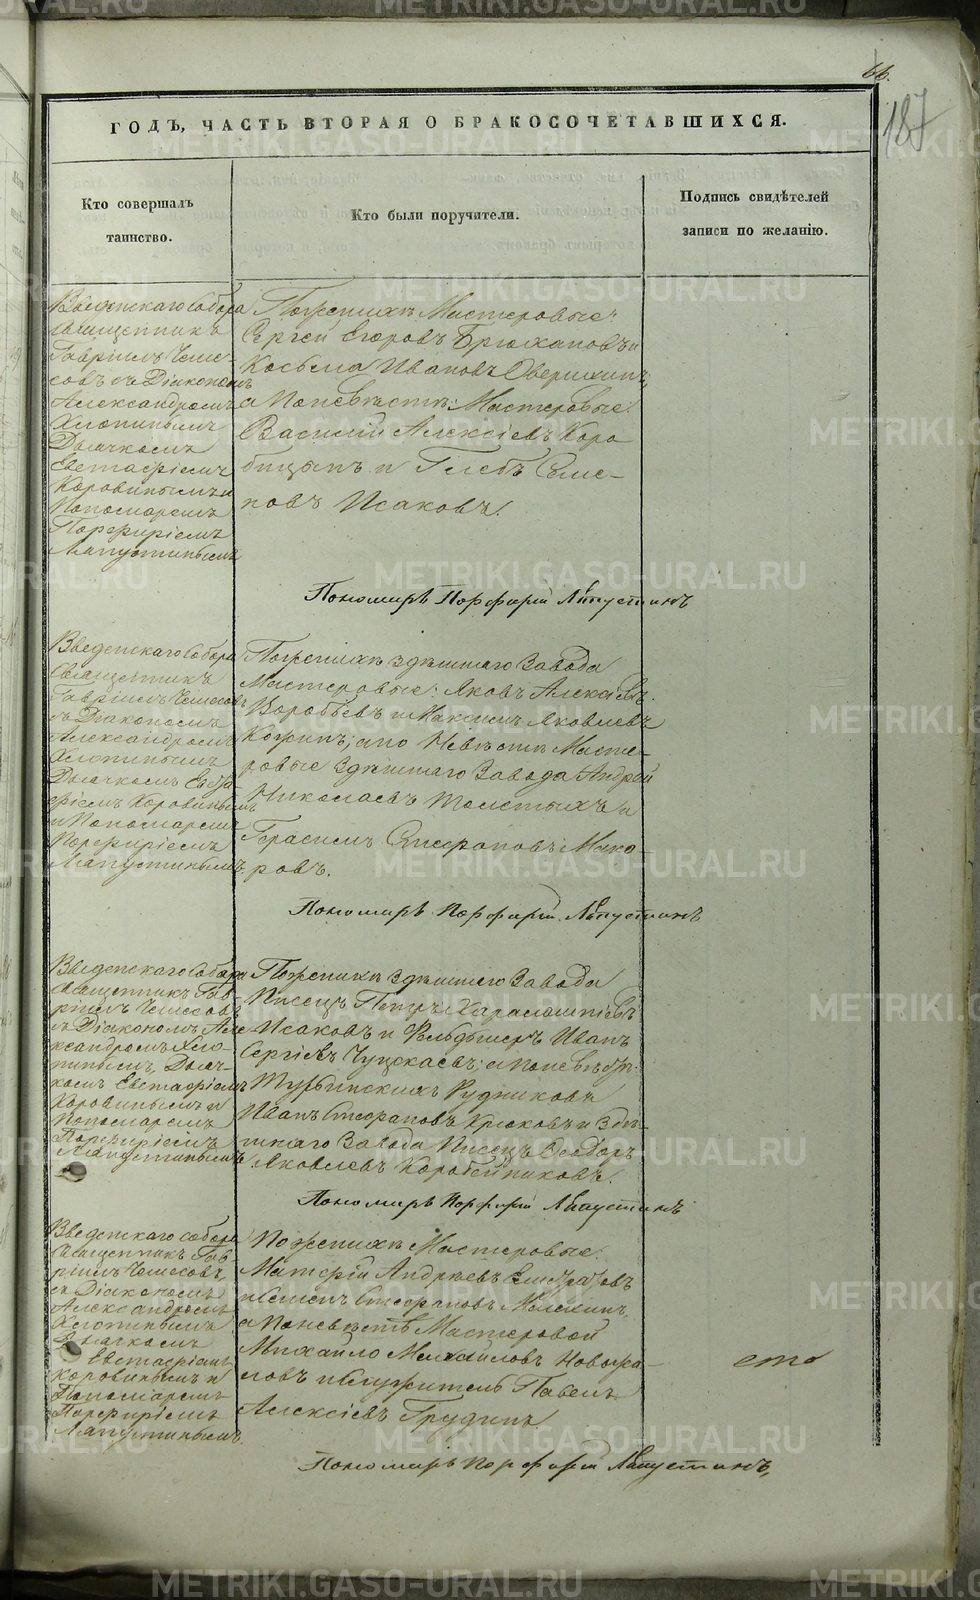 66.
187
ГОДЪ, ЧАСТЬ ВТОРАЯ О БРАКОСОЧЕТАВШИХСЯ.
Кто совершалъ
таинство.
Кто были поручители.
Подпись свидѣтелей
записи по желанію.
Введенскаго Собора
Священникъ
Гавріилъ Чеме-
совъ съ Діакономъ
Александромъ
Хлопинымъ
Дьячкомъ
Евстафіемъ
Коровинымъ и
Пономаремъ
Порфиріемъ
Лапустинымъ
По женихѣ Мастеровые:
Сергей Егоровъ Брюхановъ и
Косьма Ивановъ Оверихинъ,
а по невѣстѣ: Мастеровые:
Василій Алексѣевъ Коро
бицынъ и Глебъ Семе-
новъ Исаковъ.
Пономарь Порфирій Лапустинъ
Введенскаго Собора
Священникъ
Гавріилъ Чемесовъ
съ Діакономъ
Александромъ
Хлопинымъ
Дьячкомъ Евста-
фіемъ Коровинымъ
и Пономаремъ
Порфиріемъ
Лапустинымъ.
По женихѣ здѣшняго Завода
Мастеровые: Яковъ Алексѣевъ
Воробьевъ и Максимъ Яковлевъ
Кожинъ; а по Невѣстѣ Масте-
ровые здѣшняго Завода Андрей
Николаевъ Толстыхъ и
Герасимъ Стефановъ Мако-
ровъ.
Пономарь Порфирій Лапустинъ
Введенскаго Собора
Священникъ Гав-
ріилъ Чемесовъ
съ Діакономъ Але-
ксандромъ Хло-
пинымъ, Дьяч-
комъ Евстафіемъ
Коровинымъ и
Пономаремъ
Порфиріемъ
Лапустинымъ
По женихѣ здѣшняго Завода
Писецъ Петръ Харлампіевъ
Исаковъ и Фельдшеръ Иванъ
Сергѣевъ а по невѣстѣ:
Турьинскихъ Рудниковъ
Иванъ Стефановъ Крюковъ и Здѣ-
шняго Завода Писецъ Ѳеодоръ
Яковлевъ Коробейниковъ.
Пономарь Порфирій Лапустинъ
Введенскаго Собора
Священникъ Гав-
ріилъ Чемесовъ,
съ Діакономъ
Александромъ
Хлопинымъ
Дьячкомъ
Евстафіемъ
Коровинымъ и
Пономаремъ
Порфиріемъ
Лапустинымъ.
По женихѣ Мастеровые:
Матфѣй Андреевъ
и Стефановъ
а по невѣстѣ Мастеровой
Михайло Михайловъ Новожи-
ловъ и Служитель Павелъ
Алексѣевъ Грудинъ
Пономарь Порфирій Лапустинъ,
METRIKI.GASO-URAL.RU